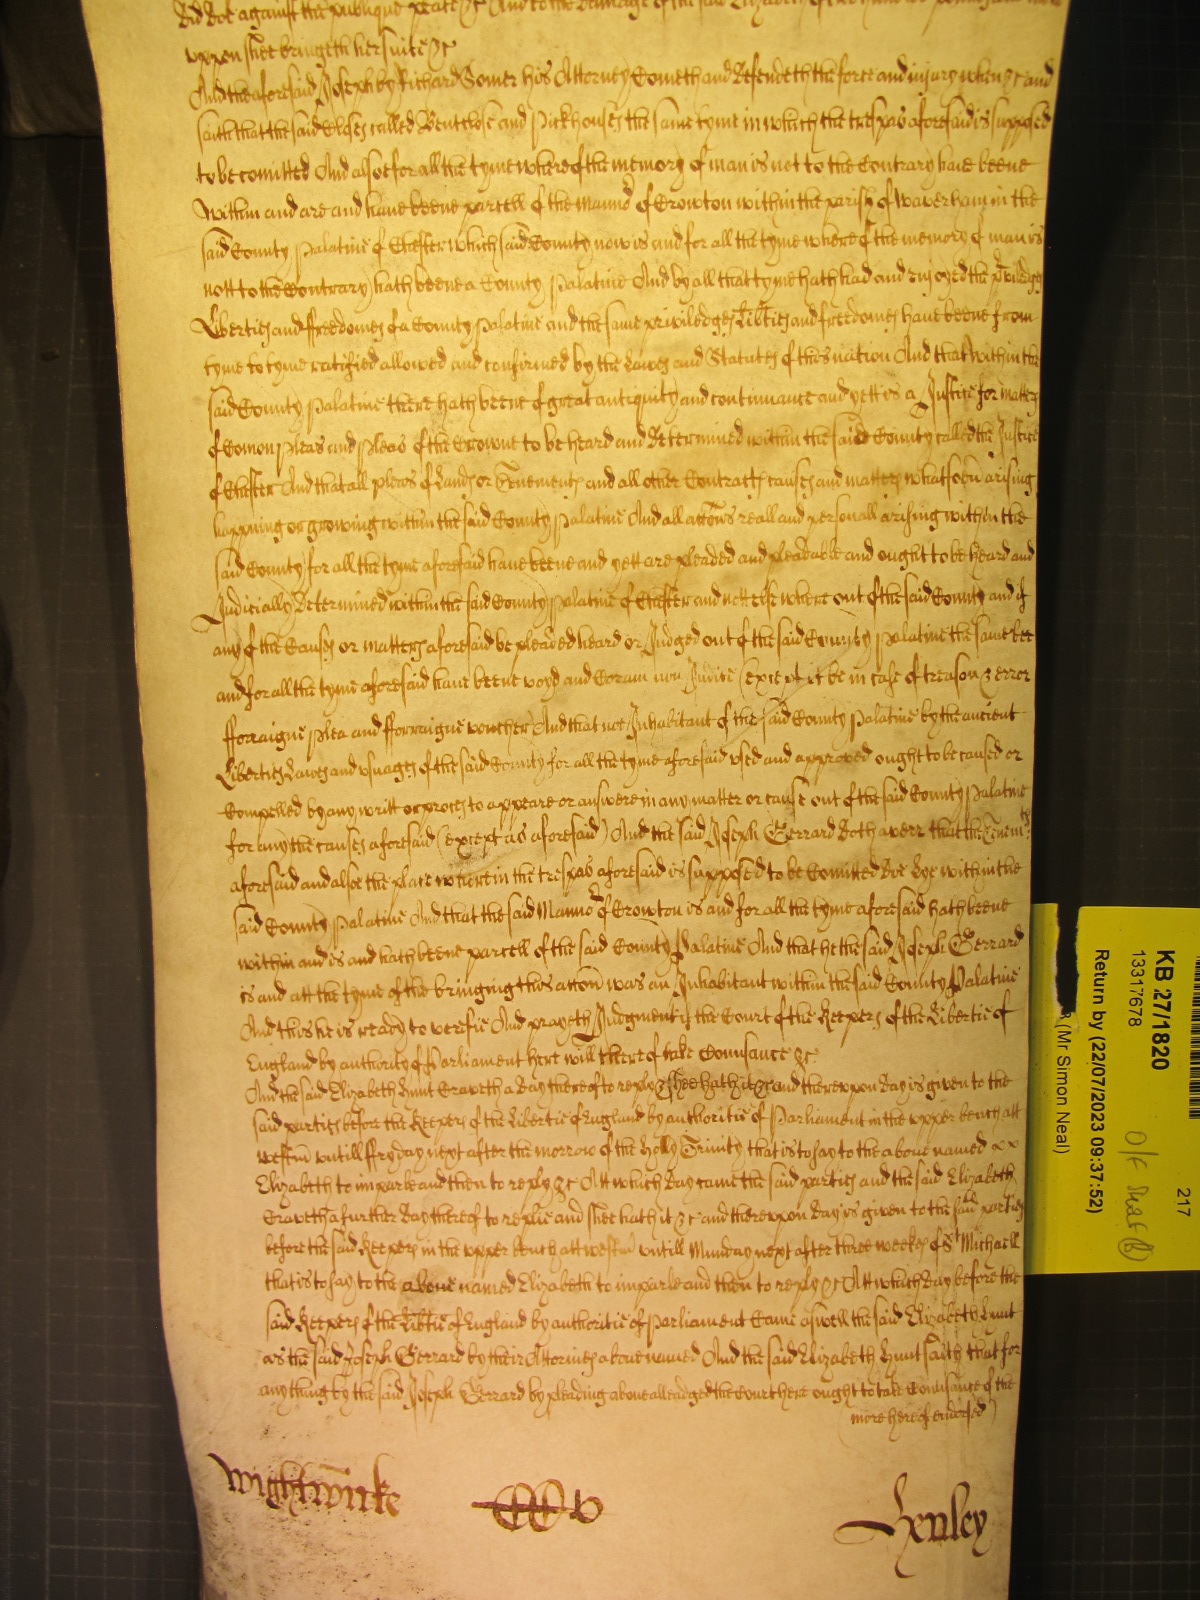 did doe against the publique peace &c And to the damage of the said Elizabeth of
uppon shee bringeth her suite &c
And the aforesaid Joseph by Richard Somer his Attorney Cometh and defendeth the force and injury when &c and
saith that the said Closes called Bentclose and Pickhouses the same tyme in which the trespas aforesaid is supposed
to be comitted And alsoe for all the tyme whereof the memory of man is not to the Contrary have beene
within and are and have beene parcell of the Mannor of Crowton within the parish of Waverham in the
said County Palatine of Chester which said County now is and for all the tyme whereof the memory of man is
nott to the Contrary hath beene a County Palatine And by all that tyme hath had and enjoyed the priviledges
Liberties and ffreedomes of a County Palatine and the same priviledges Libties and freedomes have beene from
tyme to tyme ratified allowed and confirmed by the Lawes and Statutes of this nation And that within the
said County Palatine there hath beene of great antiquity and continuance and yett is a Justice for matters
of Comon Pleas and Pleas of the Crowne to be heard and determined within the said County called the Justice
of Chester And that all pleas of Lands or Tenements and all other Contracts causes and matters whatsoever arising
happning or growing within the said County Palatine And all accons reall and personall arising within the
said County for all the tyme aforesaid have beene and yett are pleaded and pleadable and ought to be heard and
Judicially determined within the said County Palatine of Chester and not elsewhere out of the said County and if
any of the Causes or matters aforesaid be pleaded heard or Judged out of the said County Palatine the same bee
and for all the tyme aforesaid have beene voyd and Coram non Judice (except it be in case of treason & error
fforraigne plea and fforraigne voucher) And that noe Inhabitant of the said County Palatine by the ancient
Liberties Lawes and usuages of the said County for all the tyme aforesaid used and approved ought to be caused or
Compelled by any writt or proces to appeare or answere in any matter or cause out of the said County Palatine
for any the causes aforesaid (except as aforesaid) And the said Joseph Gerrard doth averr that the Tenemts
aforesaid and alsoe the place wherein the trespas aforesaid is supposed to be Comitted doe lye within the
said County Palatine And that the said Mannor of Crowton is and for all the tyme aforesaid hath beene
within and is and hath beene parcell of the said County Palatine And that he the said Joseph Gerrard
is and att the tyme of the bringing this accon was an Inhabitant within the said County Palatine
And this he is ready to verifie And prayeth Judgment if the Court of the Keepers of the Libertie of
England by authority of Parliament here will thereof take Conusance &c
And the said Elizabeth Hunt Craveth a day thereof to reply & shee hath it &c and thereupon day is given to the
said parties before the Keepers of the Libertie of England by authoritie of Parliament in the upper bench att
westm untill ffryday next after the morrow of the holly Trinity that is to say to the above named
Elizabeth to imparle and then to reply &c Att which day came the said parties and the said Elizabeth
Craveth a further day thereof to replie and shee hath it &c and thereupon day is given to the said parties
before the said Keepers in the upper bench att westm untill Munday next after three weekes of St Michaell
that is to say to the above named Elizabeth to imparle and then to reply &c Att which day before the
said Keepers of the Libtie of England by authoritie of Parliament Came aswell the said Elizabeth Hunt
as the said Joseph Gerrard by their Attornies above named And the said Elizabeth Hunt saith that for
any thing by the said Joseph Gerrard by pleading above alleadged the Court here ought to take Conusance of the
(more hereof endorsed)
Wightwicke
Henley
217
KB 27/1820
13317678
Return by (22/07/2023 09:37:52)
(Mr Simon Neal)